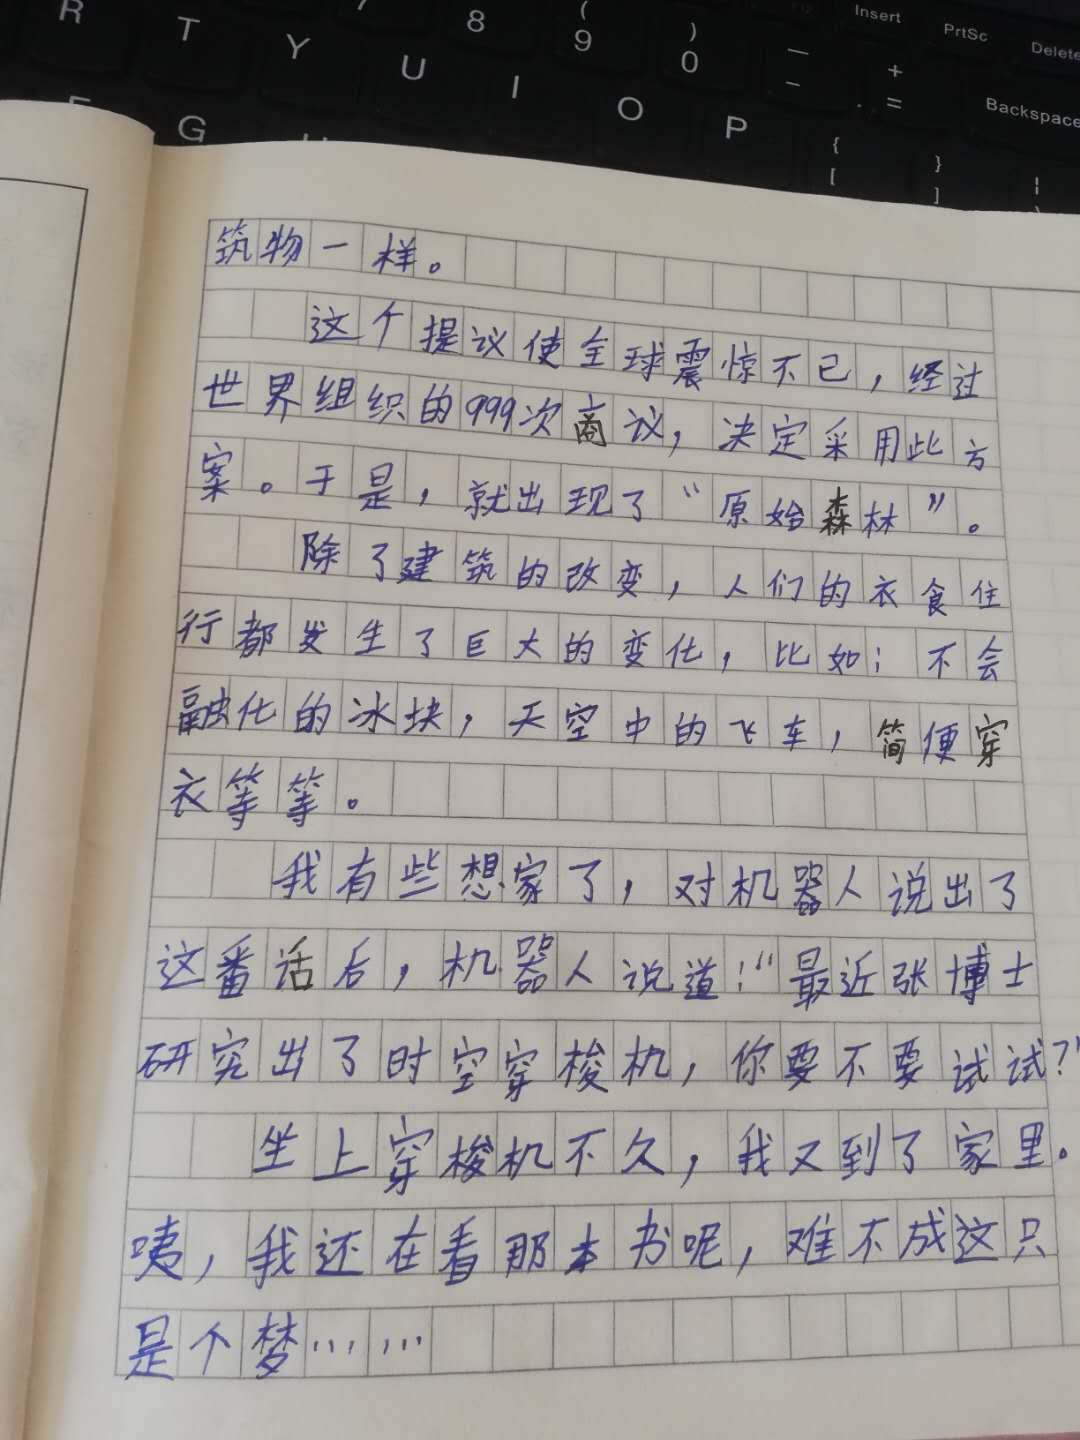 R T Y U 7 8 ( 9 ) 0 — - + = Insert PrtSc Delete
G I O P { [ } ] Backspace
筑物一样。
这个提议使全球震惊不已，经过
世界组织的999次商议，决定采用此方
案。于是，就出现了“原始森林”。
除了建筑的改变，人们的衣食住
行都发生了巨大的变化，比如：不会
融化的冰块，天空中的飞车，简便穿
衣等等。
我有些想家了，对机器人说出了
这番话后，机器人说道：“最近张博士
研究出了时空穿梭机，你要不要试试？”
坐上穿梭机不久，我又到了家里。
咦，我还在看那本书呢，难不成这只
是个梦……